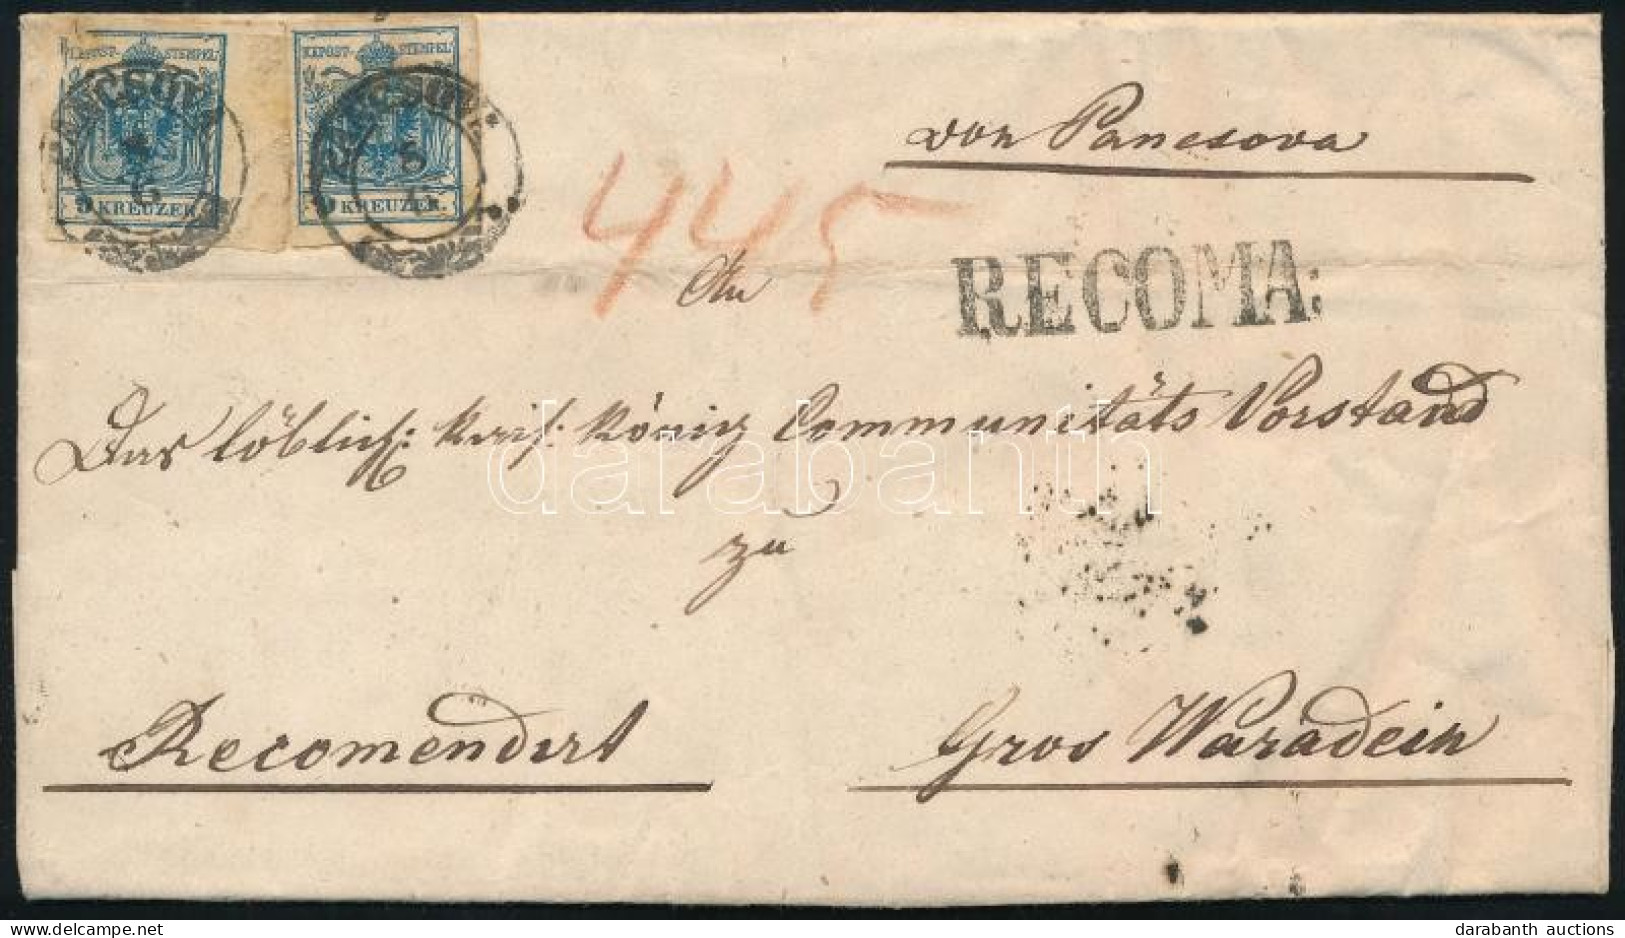 K.K.POST-STEMPEL
K.K.POST-STEMPEL
9 KREUZER.
9 KREUZER.
PANCSOVA
PANCSOVA
von Pancsova
445
RECOMA:
An
Das löblich: kais: König Communitäts Vorstand
zu
Recomendirt
Gros Waradein
darabanth
darabanth auctions